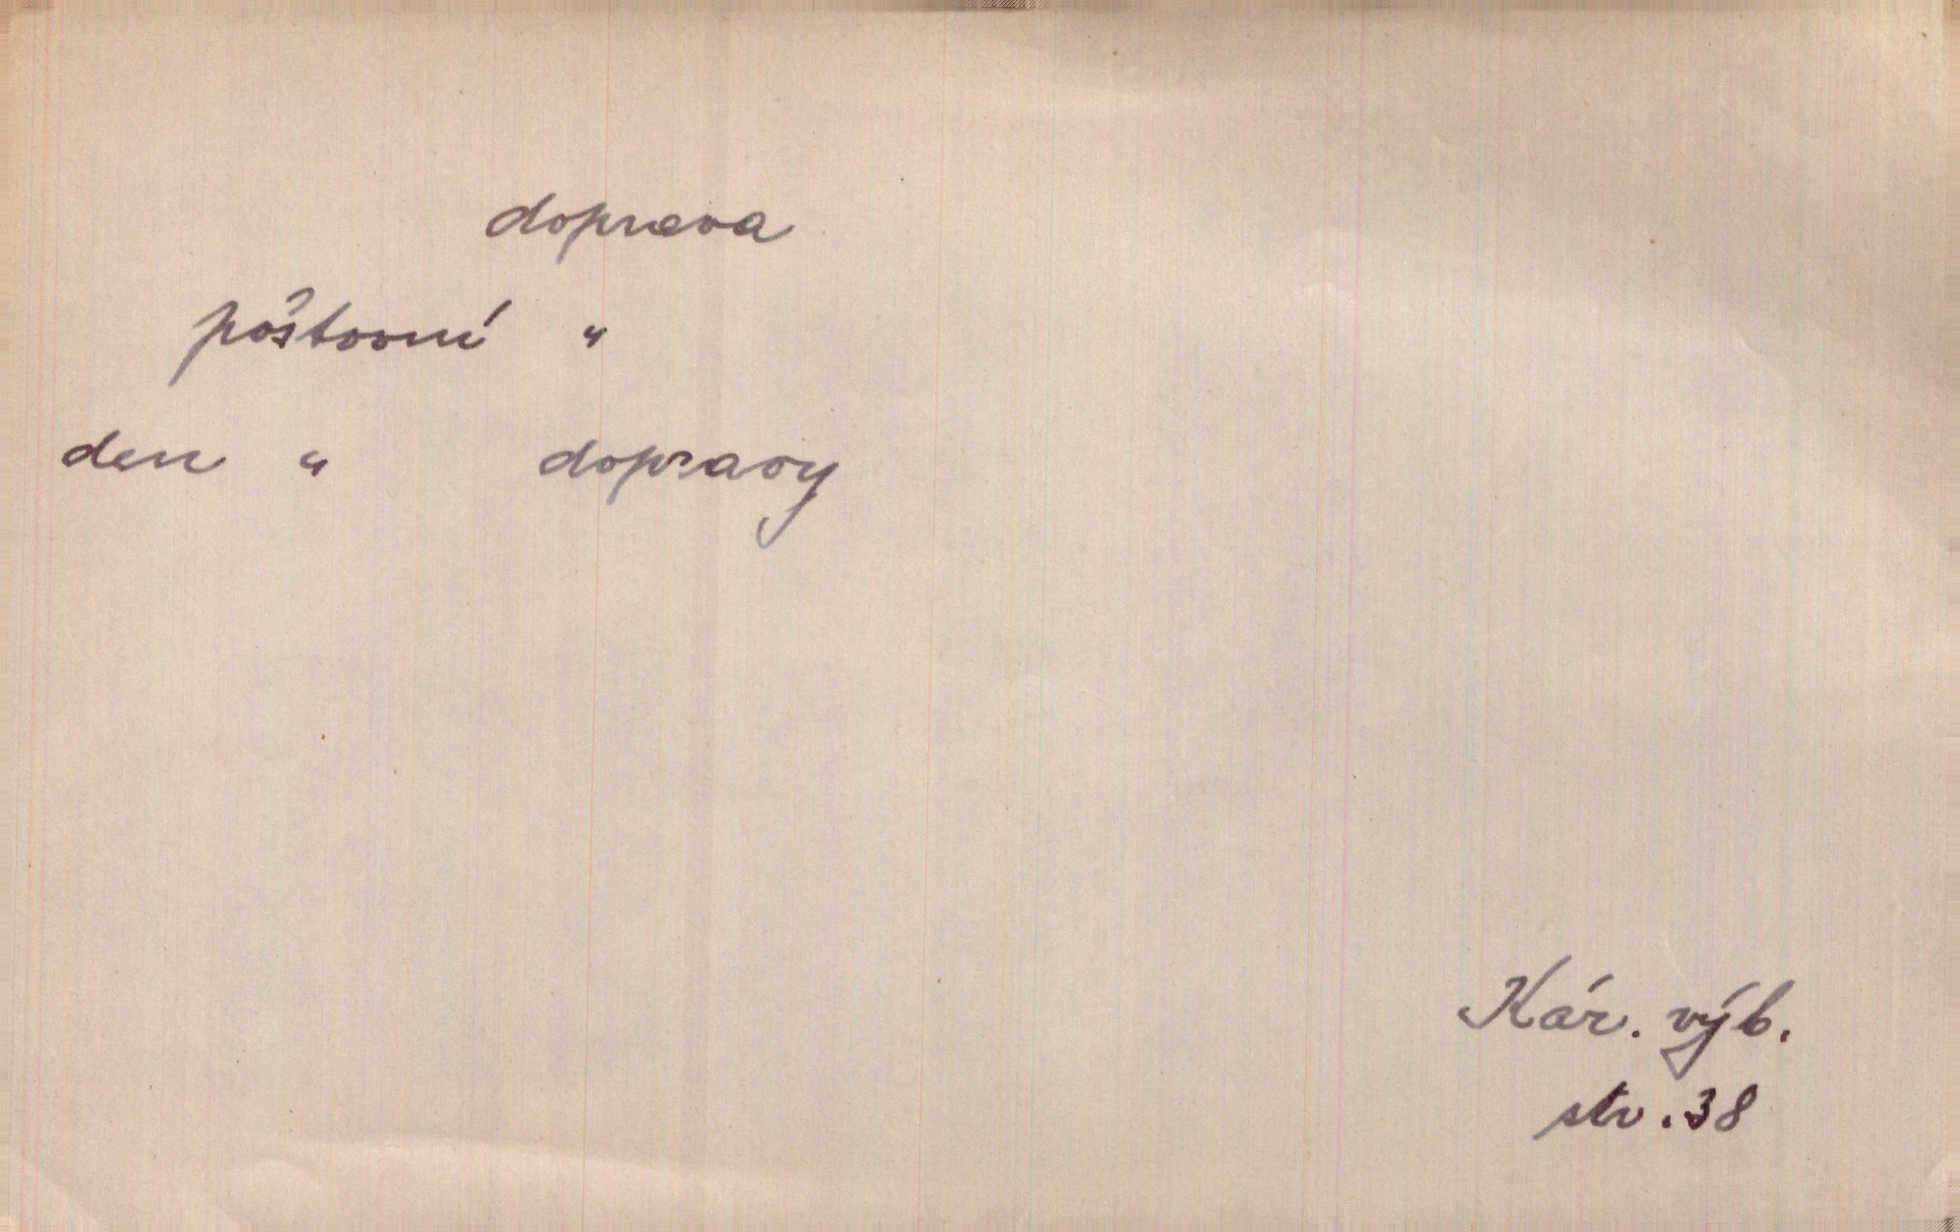 doprava
poštovní "
den " dopravy
Kár. výb.
str. 38